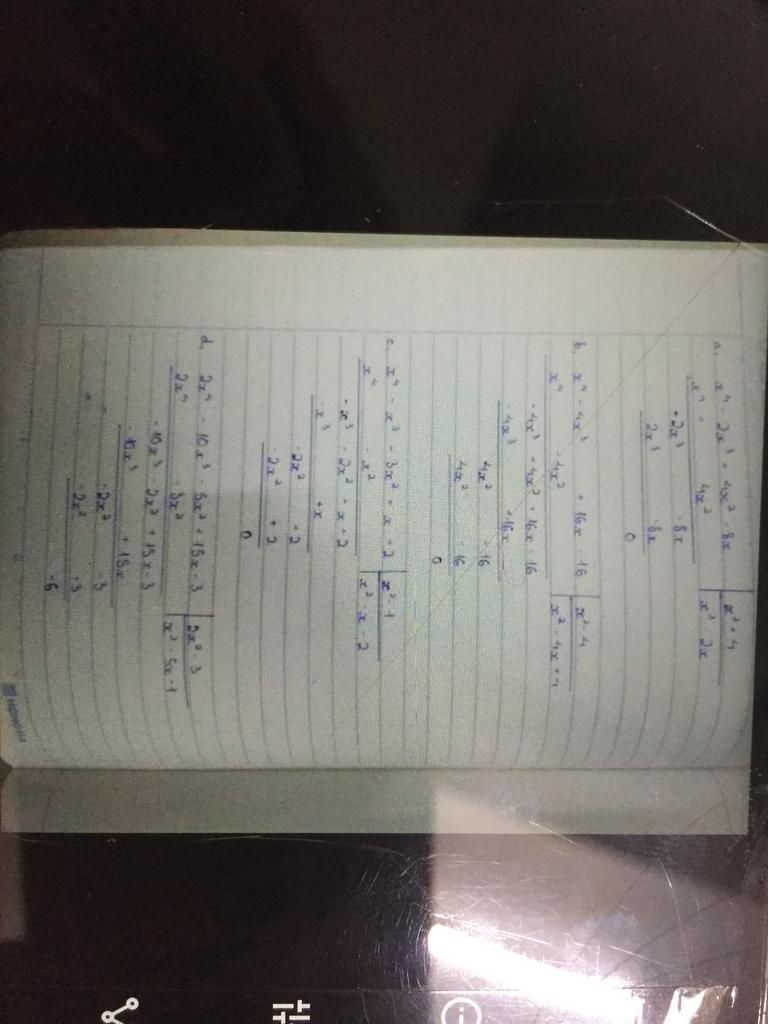 a. x⁴ - 2x³ + 4x² - 8x | x² + 4
x⁴ + 4x² | x² - 2x
-2x³ - 8x
2x³ - 8x
0
b. x⁴ - 4x³ + 16x - 16 | x² - 4
x⁴ - 4x² | x² - 4x + 4
-4x³ + 4x² + 16x - 16
-4x³ + 16x
4x² - 16
4x² - 16
0
c. x⁴ - x³ - 3x² + x + 2 | x² - 1
x⁴ - x² | x² - x - 2
-x³ - 2x² + x + 2
-x³ + x
-2x² + 2
2x² + 2
0
d. 2x⁴ - 10x³ - 5x² + 15x - 3 | 2x² - 3
2x⁴ - 3x² | x² - 5x - 1
-10x³ - 2x² + 15x - 3
-10x³ + 15x
-2x² - 3
-2x² + 3
-6